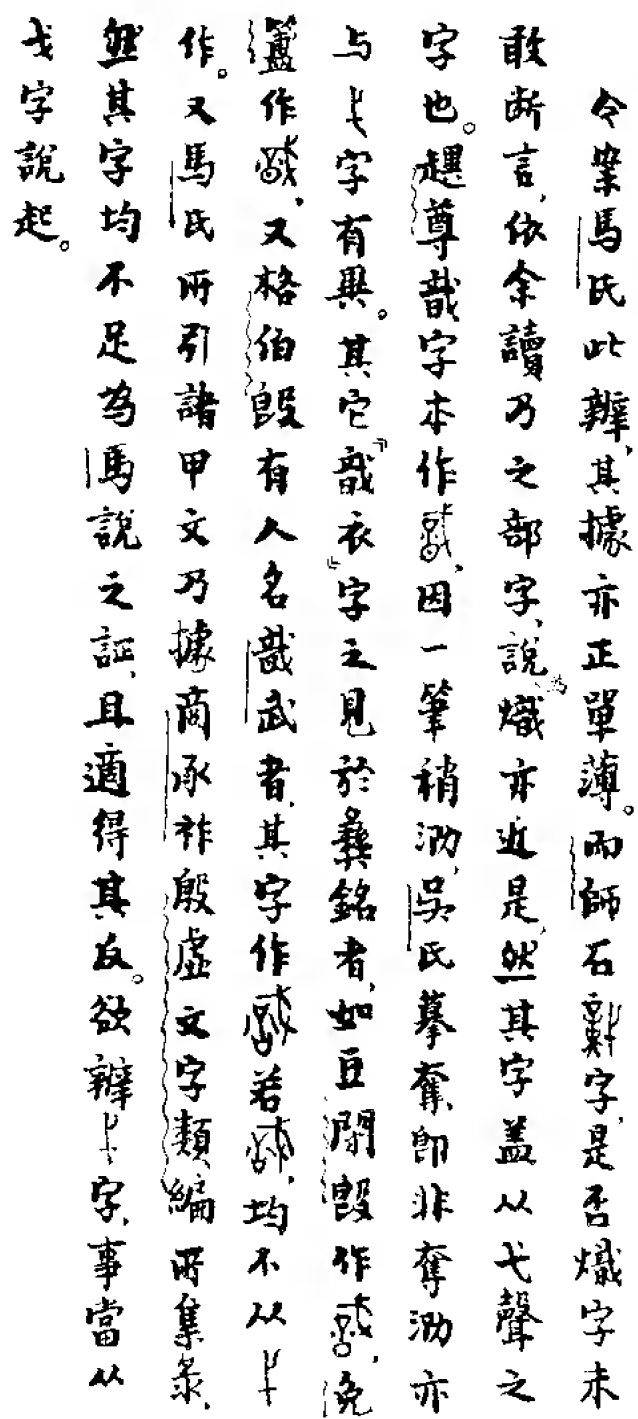 令案馬氏此辨，其據亦正單薄。而師石𩏑字，是否熾字未
敢断言，依余讀乃之部字，說為熾亦近是，然其字蓋从弋聲之
字也。趩尊戠字本作，因一筆稍泐，吳氏摹奪，即非奪泐亦
与字有異。其它『戠衣』字之見於彝銘者，如豆閉𣪘作，免
簠作，又格伯𣪘有人名戠武者，其字作若，均不从
作。又馬氏所引諸甲文乃據商承祚殷虛文字類編所集录，
然其字均不足為馬說之証，且適得其反。欲辨字，事當从
戈字說起。